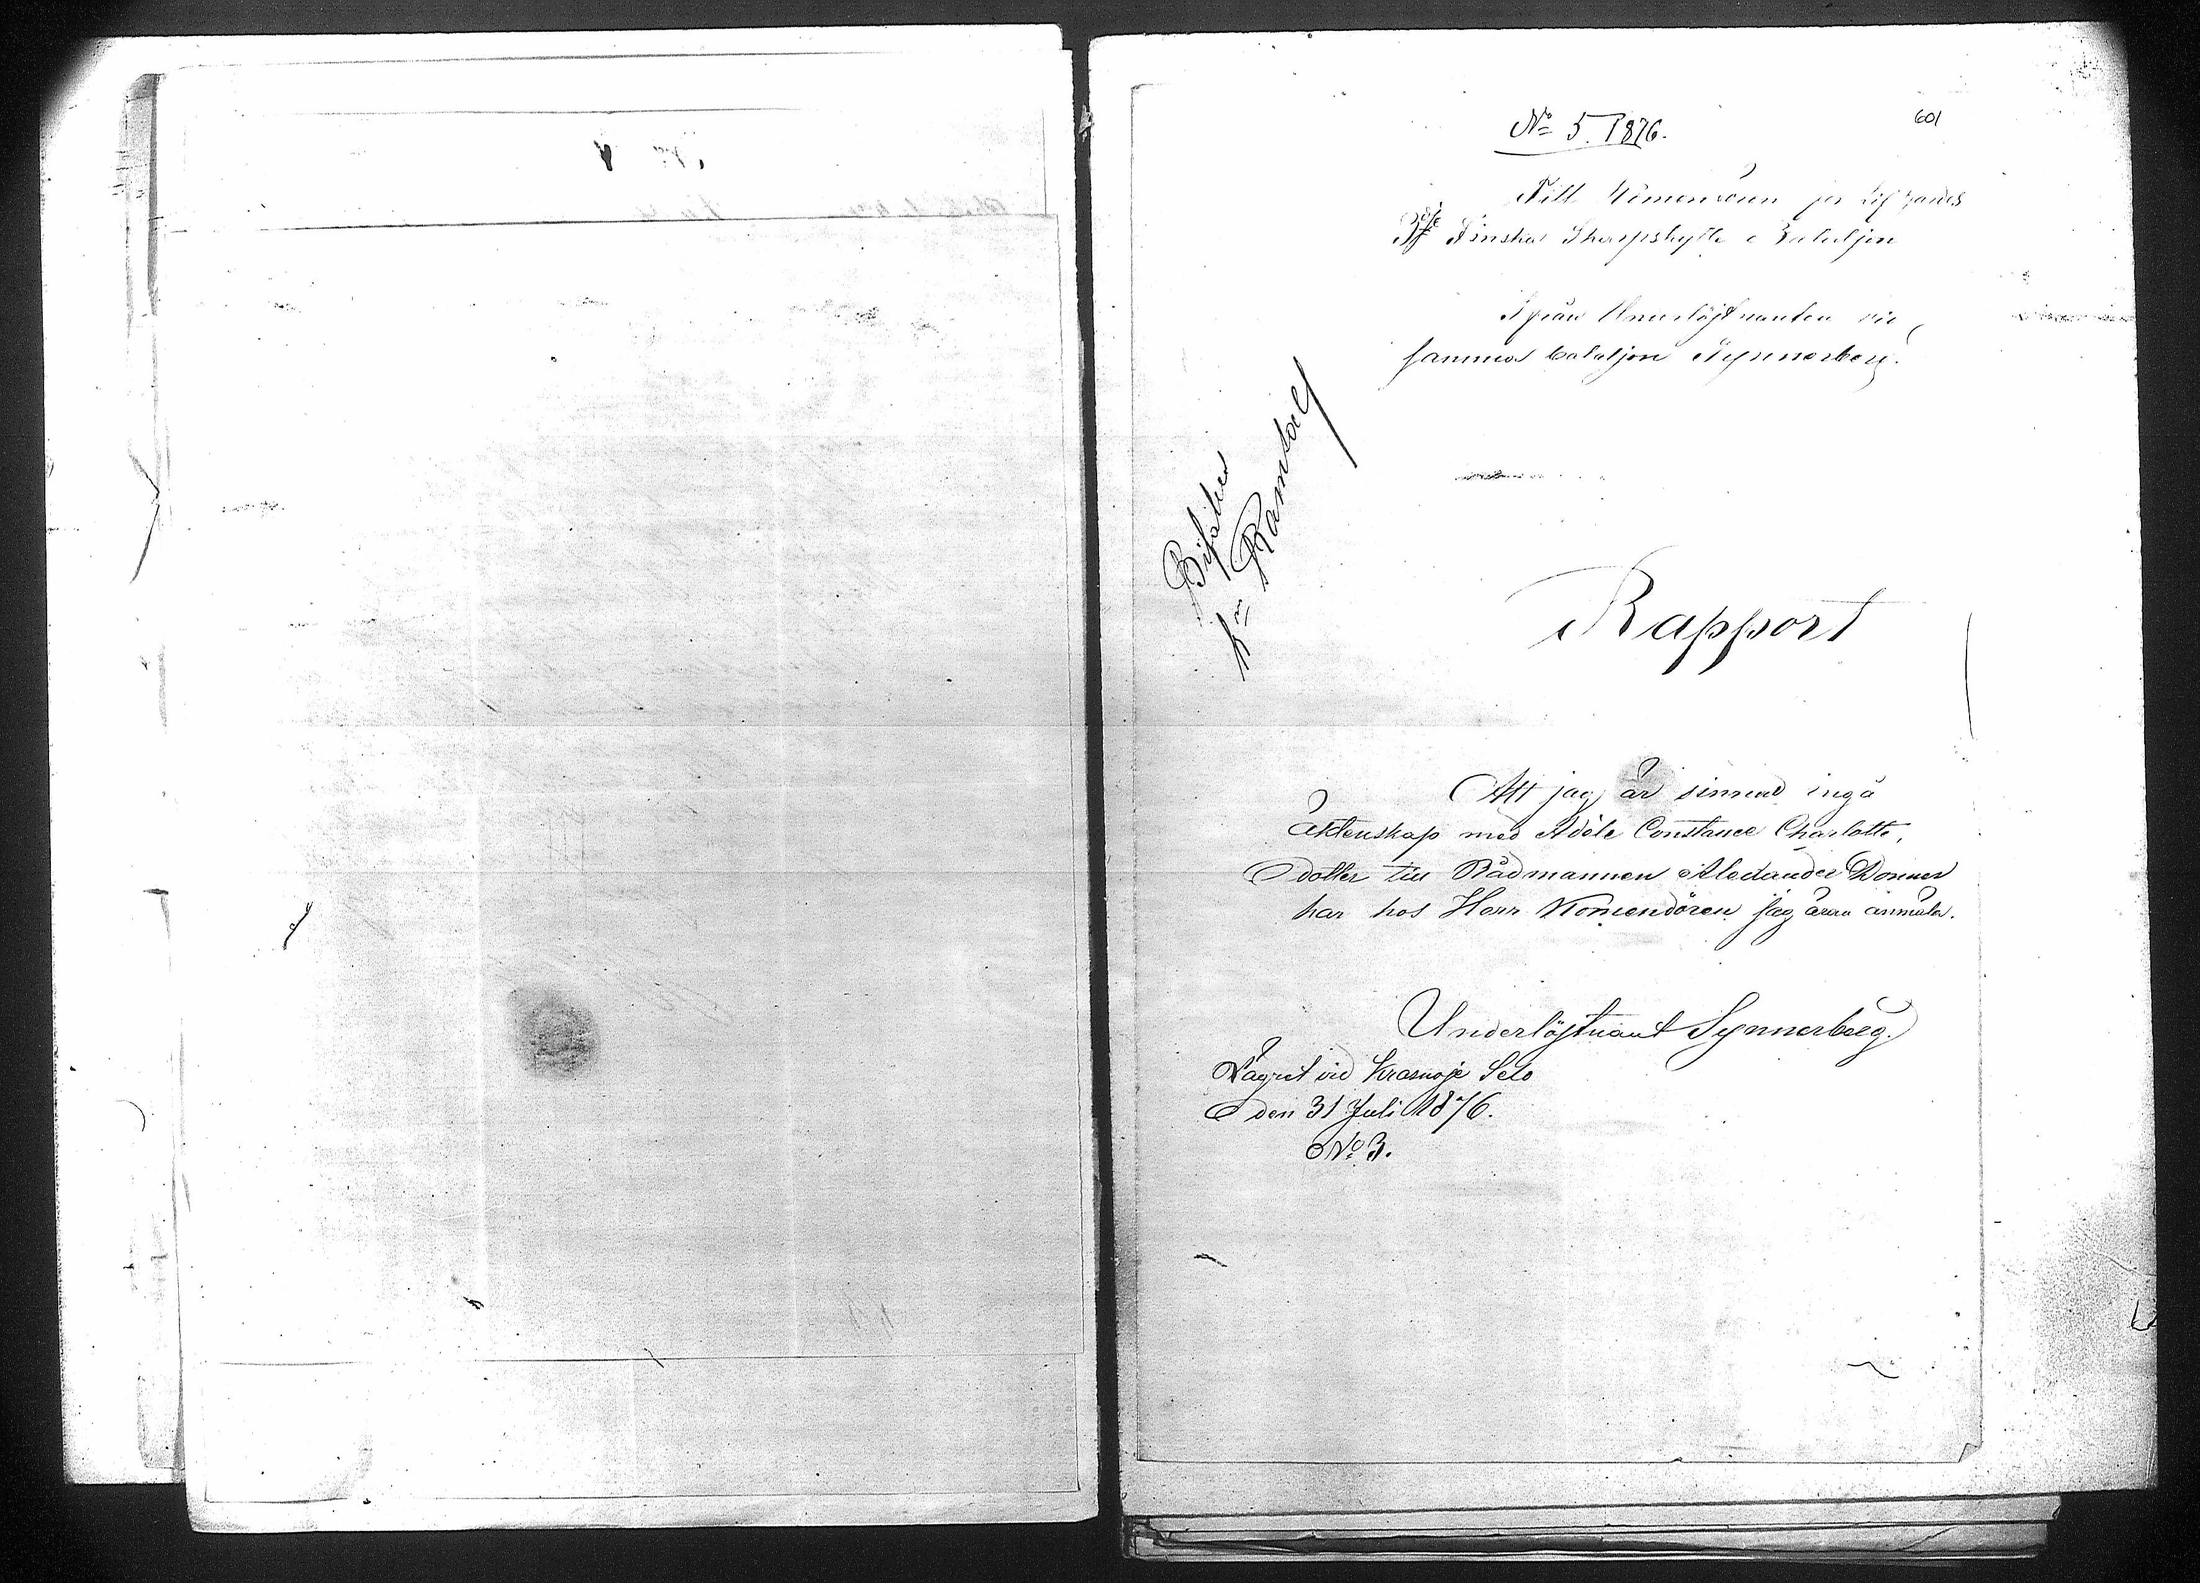 601
No 5. 1876.
Till Komendören för Lifgardes
3dje Finska Skarpskytte Bataljon
Ifrån Underlöjtnanten vid
samma bataljon Synnerberg.
Bifalles
Ramsay
Rapport
Att jag är sinnad ingå
äktenskap med Adèle Constance Charlotte,
dotter till Rådmannen Alexander Donner
har hos Herr Komendören jag äran anmäla.
Underlöjtnant Synnerberg.
Lägret vid Krasnoje Selo
den 31 Juli 1876.
No 3.